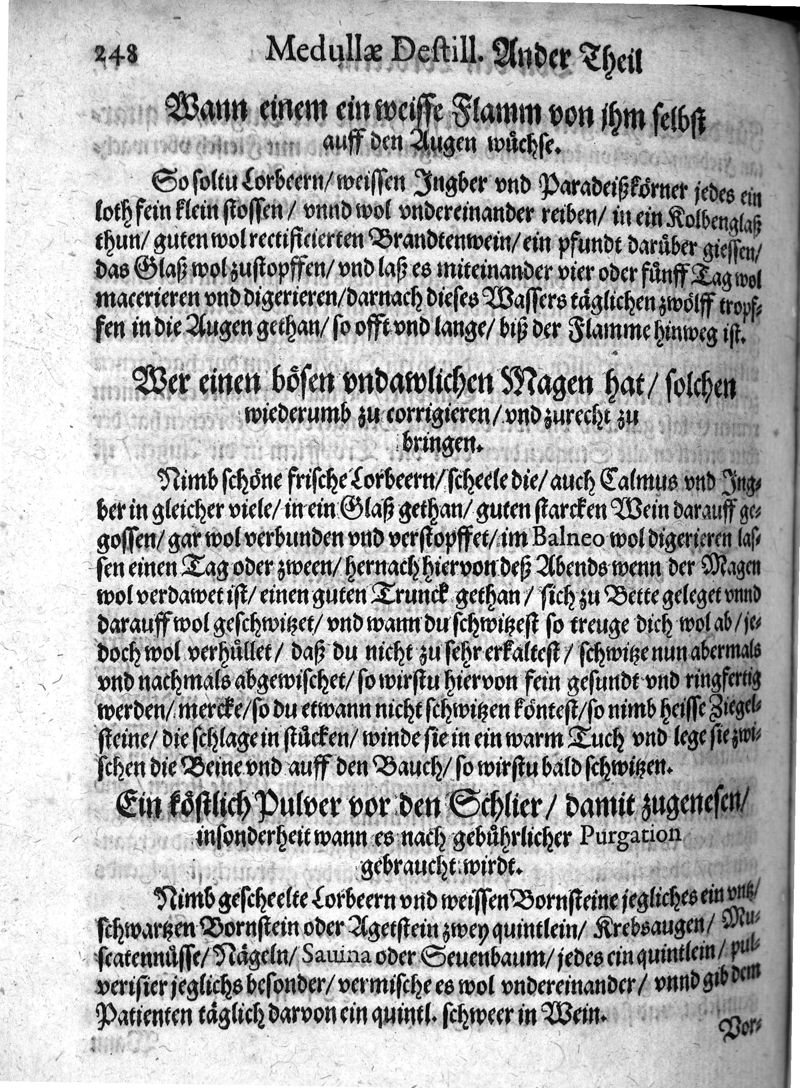 248 Medullæ Destill. Ander Theil
Wann einem ein weisse Flamm von jhm selbst
auff den Augen wüchse.
So soltu Lorbeern/ weissen Jngber vnd Paradeißkörner jedes ein
loth fein klein stossen/ vnnd wol vndereinander reiben/ in ein Kolbenglaß
thun/ guten wol rectificierten Brandtenwein/ ein pfundt darüber giessen/
das Glaß wol zustopffen/ vnd laß es miteinander vier oder fünff Tag wol
macerieren vnd digerieren/ darnach dieses Wassers täglichen zwölff tropf-
fen in die Augen gethan/ so offt vnd lange/ biß der Flamme hinweg ist.
Wer einen bösen vndawlichen Magen hat/ solchen
wiederumb zu corrigieren/ vnd zurecht zu
bringen.
Nimb schöne frische Lorbeern/ scheele die/ auch Calmus vnd Jng-
ber in gleicher viele/ in ein Glaß gethan/ guten starcken Wein darauff ge-
gossen/ gar wol verbunden vnd verstopffet/ im Balneo wol digerieren las-
sen einen Tag oder zween/ hernach hiervon deß Abends wenn der Magen
wol verdawet ist/ einen guten Trunck gethan/ sich zu Bette geleget vnnd
darauff wol geschwitzet/ vnd wann du schwitzest so treuge dich wol ab/ je-
doch wol verhüllet/ daß du nicht zu sehr erkaltest/ schwitze nun abermals
vnd nachmals abgewischet/ so wirstu hiervon fein gesundt vnd ringfertig
werden/ mercke/ so du etwann nicht schwitzen köntest/ so nimb heisse Ziegel-
steine/ die schlage in stücken/ winde sie in ein warm Tuch vnd lege sie zwi-
schen die Beine vnd auff den Bauch/ so wirstu bald schwitzen.
Ein köstlich Pulver vor den Schlier/ damit zugenesen/
insonderheit wann es nach gebührlicher Purgation
gebraucht wirdt.
Nimb gescheelte Lorbeern vnd weissen Bornsteine jegliches ein vntz/
schwartzen Bornstein oder Agetstein zwey quintlein/ Krebsaugen/ Mu-
scatennüsse/ Nägeln/ Sauina oder Seuenbaum/ jedes ein quintlein/ pul-
verisier jeglichs besonder/ vermische es wol vndereinander/ vnnd gib dem
Patienten täglich darvon ein quintl. schweer in Wein.
Vor-